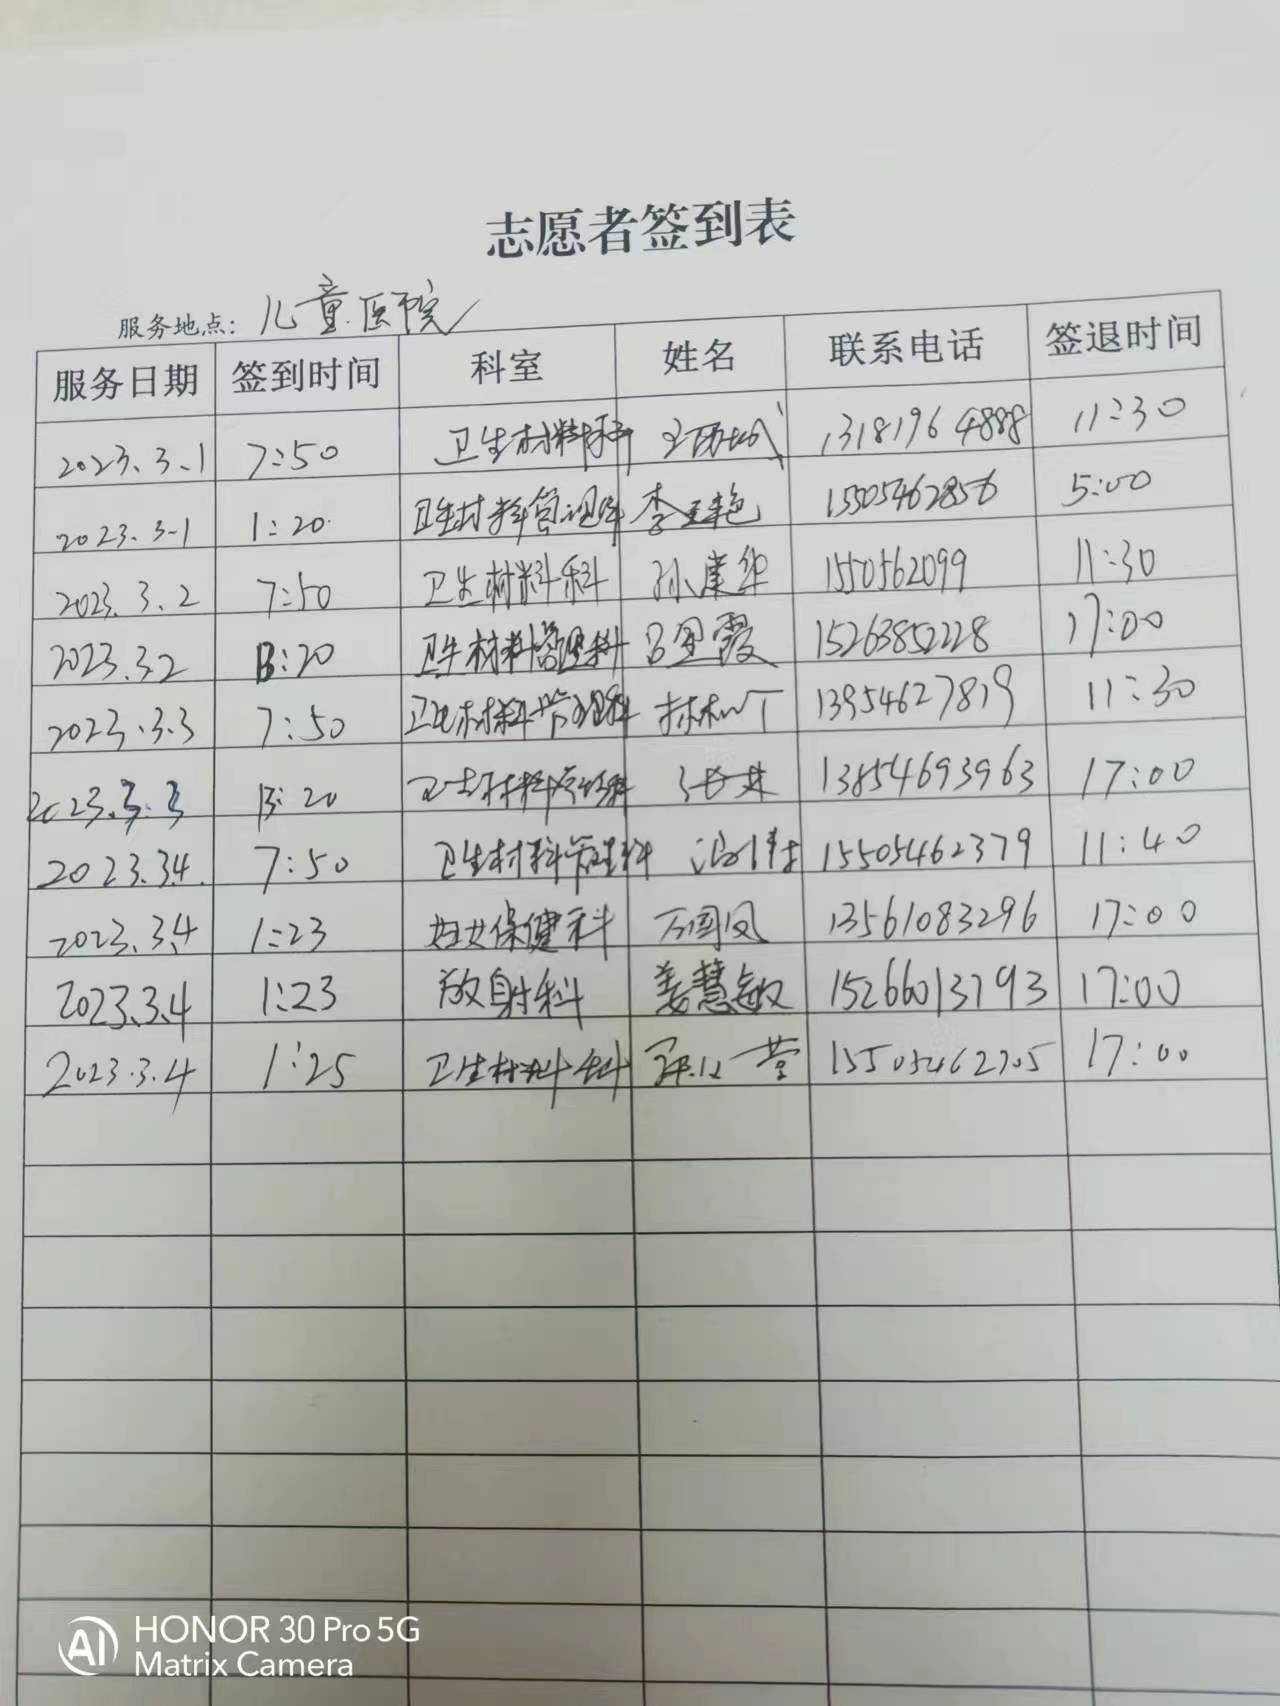 志愿者签到表
服务地点：儿童医院
服务日期 签到时间 科室 姓名 联系电话 签退时间
2023.3.1 7:50 卫生材料科 13181964888 11:30
2023.3.1 1:20 卫生材料管理科 李玉艳 15505462856 5:00
2023.3.2 7:50 卫生材料科 孙建华 1550562099 11:30
2023.3.2 13:20 卫生材料管理科 吕圣霞 15263852228 17:00
2023.3.3 7:50 卫生材料管理科 13954627819 11:30
2023.3.3 13:20 卫生材料管理科 13854693963 17:00
2023.3.4 7:50 卫生材料管理科 15505462379 11:40
2023.3.4 1:23 妇女保健科 万国凤 13561083296 17:00
2023.3.4 1:23 放射科 姜慧敏 15266013793 17:00
2023.3.4 1:25 卫生材料科 15505462705 17:00
HONOR 30 Pro 5G
AI Matrix Camera